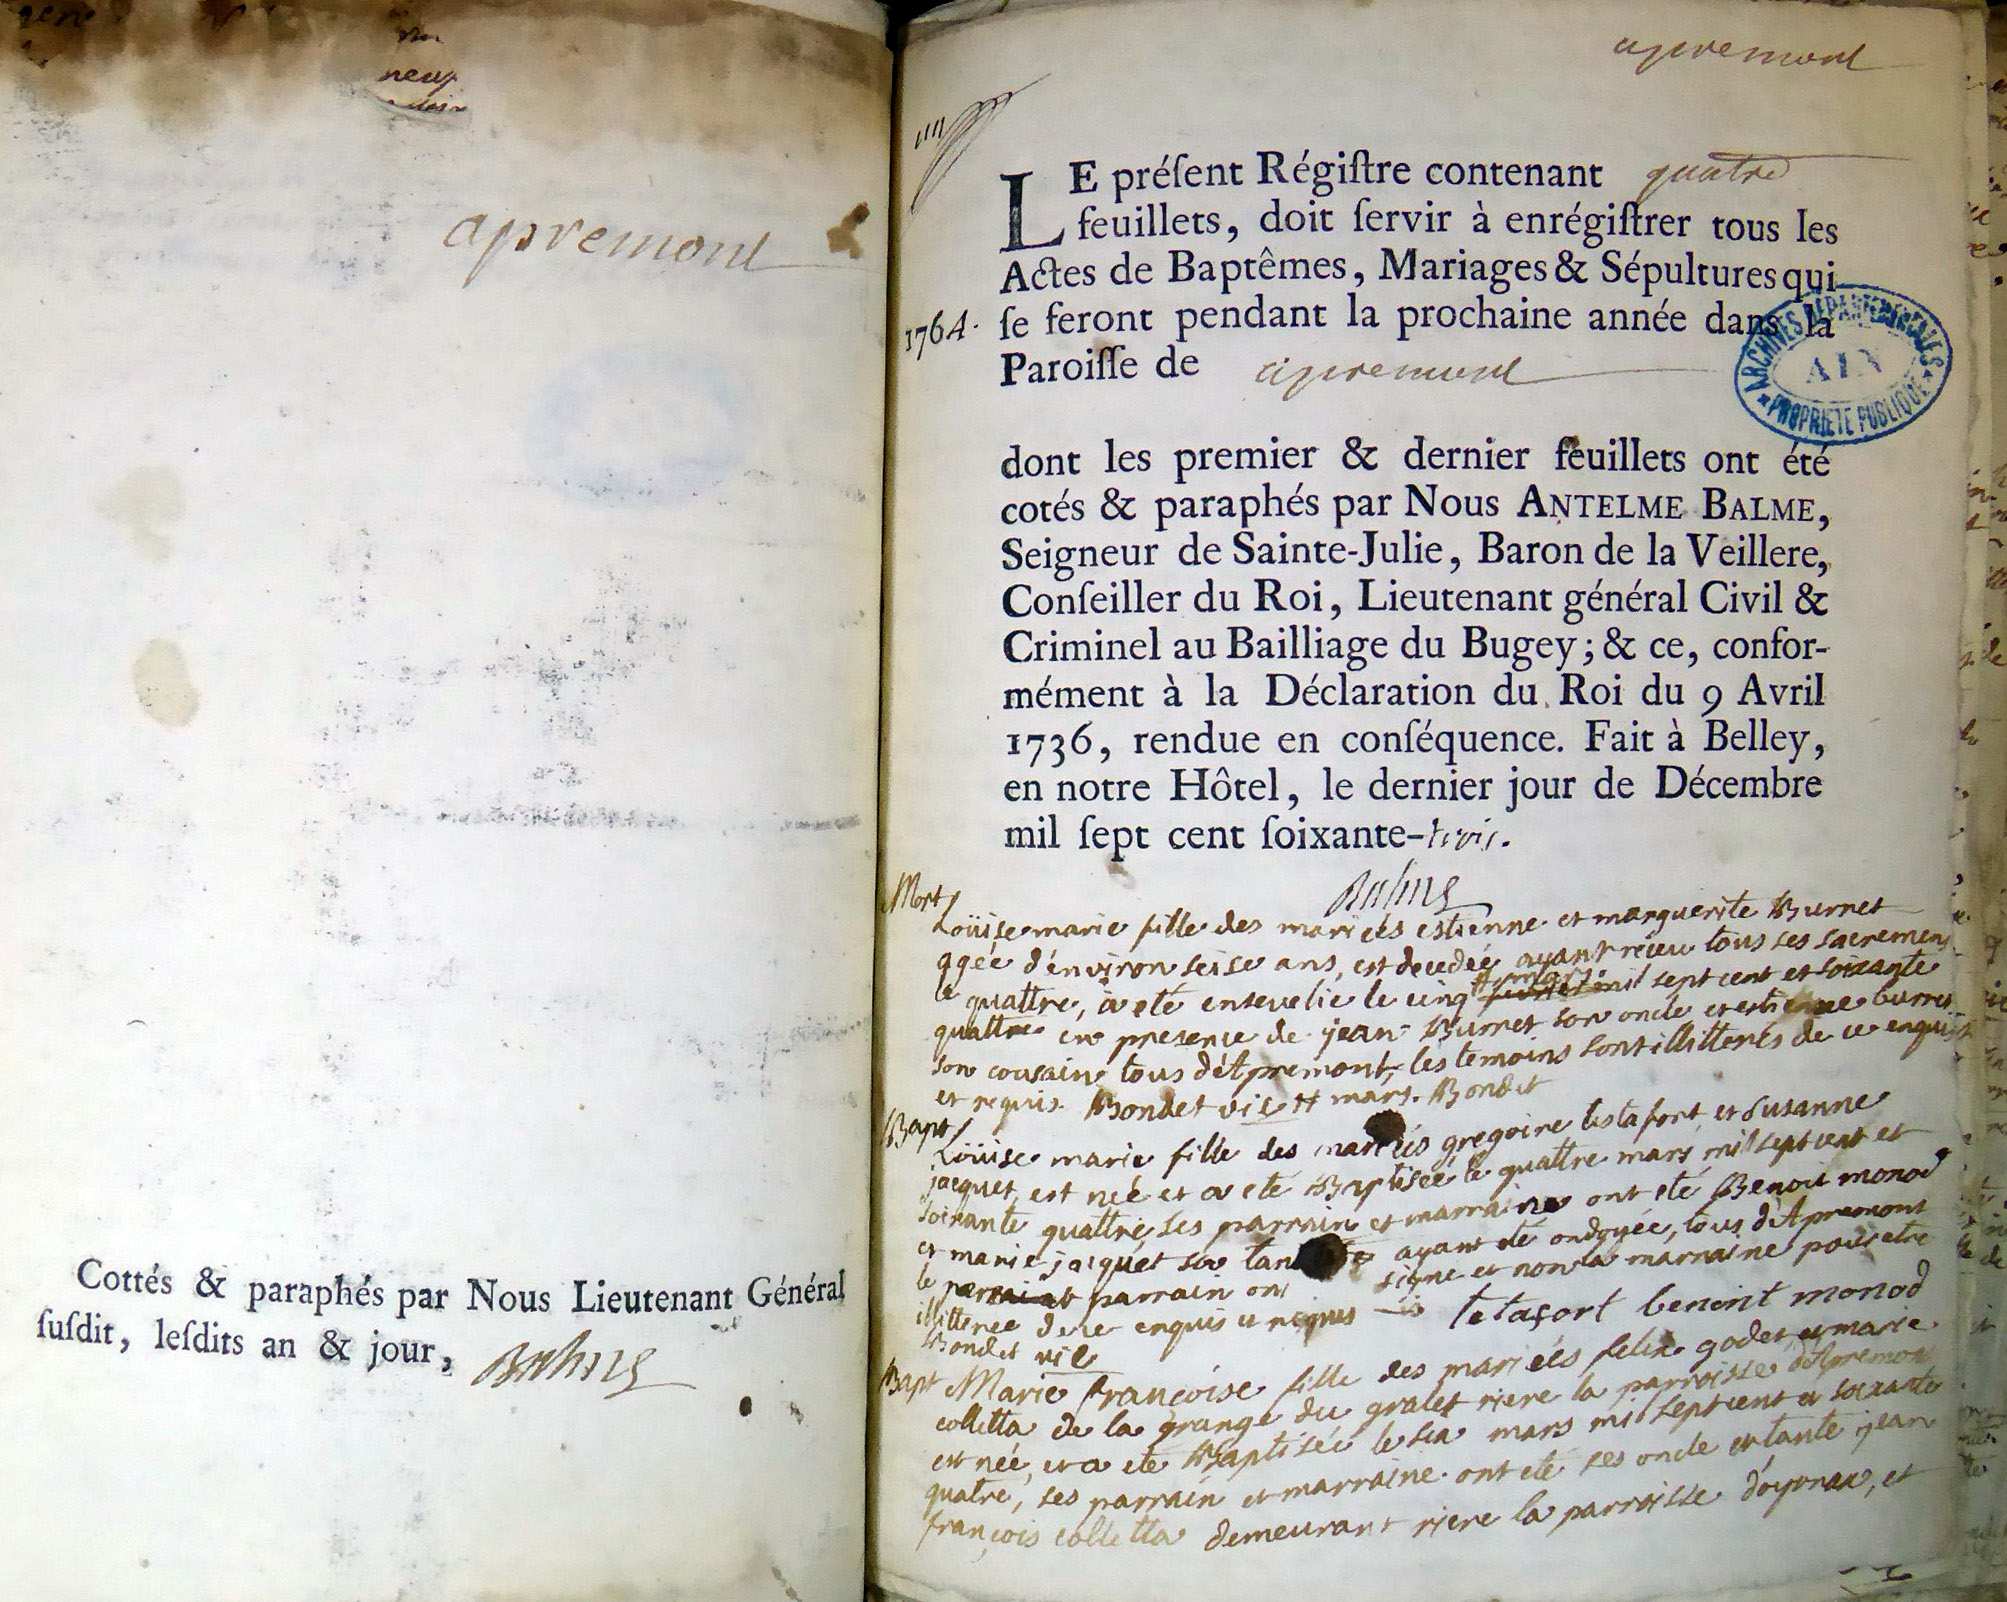 neuf
apremont
Cottés & paraphés par Nous Lieutenant Général
ſuſdit, leſdits an & jour, Balme
apremont
IIII
LE préſent Régiſtre contenant quatre
feuillets, doit ſervir à enrégiſtrer tous les
Actes de Baptêmes, Mariages & Sépultures qui
1764. ſe feront pendant la prochaine année dans la
Paroiſſe de apremont
ARCHIVES DÉPARTEMENTALES
AIN
PROPRIÉTÉ PUBLIQUE
dont les premier & dernier feuillets ont été
cotés & paraphés par Nous ANTELME BALME,
Seigneur de Sainte-Julie, Baron de la Veillere,
Conſeiller du Roi, Lieutenant général Civil &
Criminel au Bailliage du Bugey; & ce, confor-
mément à la Déclaration du Roi du 9 Avril
1736, rendue en conſéquence. Fait à Belley,
en notre Hôtel, le dernier jour de Décembre
mil ſept cent ſoixante-trois.
Balme
Mort
Loüise marie fille des mariés estienne et marguerite Burnet
agée d'environ seise ans, est decedée ayant reieu tous ses sacremens
le quattre, à eté ensevelie le cinq # mars mil sept cent et soixante
quattre en presence de jean Burnet son oncle et estienne burnet
son cousain tous d'Apremont, les temoins sont illitterés de ce enquis
et requis. Bondet vic # mars. Bondet
Bapt
Loüise marie fille des mariés gregoire testafort, et Susanne
jacquet, est neé et a eté Baptisée le quattre mars mil sept cent et
soixante quattre, ses parrain et marraine ont eté Benoit monod
et marie jacquet sa tante ayant eté ondoyée, tous d'Apremont
le parrain ont signé et non la marraine pour etre
illitterée de ce enquis et requis tetafort benoit monod
Bondet vic
Bapt Marie françoise fille des mariés felix godet et marie
colletta de la grange du gralet riere la parroisse d'Apremont
est née, et a eté Baptisée le six mars mil sept cent et soixante
quatre, ses parrain et marraine ont eté ses oncle et tante jean
françois colletta demeurant riere la parroisse d'oyonax, et